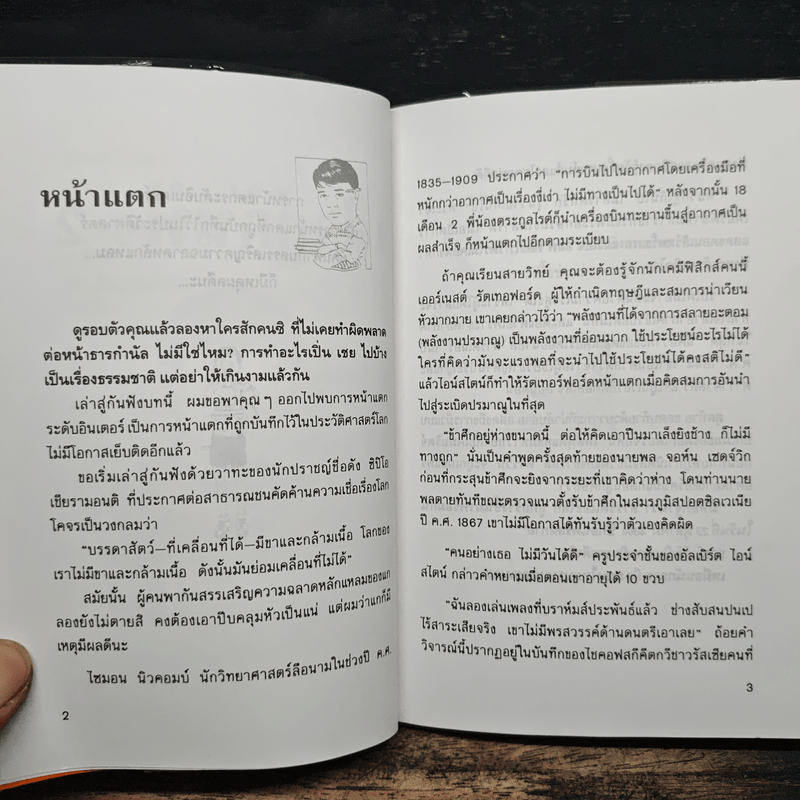 หน้าแตก
ดูรอบตัวคุณแล้วลองหาใครสักคนซิ ที่ไม่เคยทำผิดพลาด
ต่อหน้าธารกำนัล ไม่มีใช่ไหม? การทำอะไรเปิ่น เชย ไปบ้าง
เป็นเรื่องธรรมชาติ แต่อย่าให้เกินงามแล้วกัน
เล่าสู่กันฟังบทนี้ ผมขอพาคุณๆ ออกไปพบการหน้าแตก
ระดับอินเตอร์ เป็นการหน้าแตกที่ถูกบันทึกไว้ในประวัติศาสตร์โลก
ไม่มีโอกาสเย็บติดอีกแล้ว
ขอเริ่มเล่าสู่กันฟังด้วยวาทะของนักปราชญ์ชื่อดัง ซิปิโอ
เชียรามอนติ ที่ประกาศต่อสาธารณชนคัดค้านความเชื่อเรื่องโลก
โคจรเป็นวงกลมว่า
"บรรดาสัตว์—ที่เคลื่อนที่ได้—มีขาและกล้ามเนื้อ โลกของ
เราไม่มีขาและกล้ามเนื้อ ดังนั้นมันย่อมเคลื่อนที่ไม่ได้"
สมัยนั้น ผู้คนพากันสรรเสริญความฉลาดหลักแหลมของแก
ลองยังไม่ตายสิ คงต้องเอาปีบคลุมหัวเป็นแน่ แต่ผมว่าแกก็มี
เหตุมีผลดีนะ
ไซมอน นิวคอมบ์ นักวิทยาศาสตร์ลือนามในช่วงปี ค.ศ.
2
1835—1909 ประกาศว่า "การบินไปในอากาศโดยเครื่องมือที่
หนักกว่าอากาศเป็นเรื่องงี่เง่า ไม่มีทางเป็นไปได้" หลังจากนั้น 18
เดือน 2 พี่น้องตระกูลไรต์ก็นำเครื่องบินทะยานขึ้นสู่อากาศเป็น
ผลสำเร็จ ก็หน้าแตกไปอีกตามระเบียบ
ถ้าคุณเรียนสายวิทย์ คุณจะต้องรู้จักนักเคมีฟิสิกส์คนนี้
เออร์เนสต์ รัตเทอฟอร์ด ผู้ให้กำเนิดทฤษฎีและสมการน่าเวียน
หัวมากมาย เขาเคยกล่าวไว้ว่า "พลังงานที่ได้จากการสลายอะตอม
(พลังงานปรมาณู) เป็นพลังงานที่อ่อนมาก ใช้ประโยชน์อะไรไม่ได้
ใครที่คิดว่ามันจะแรงพอที่จะนำไปใช้ประโยชน์ได้คงสติไม่ดี"
แล้วไอน์สไตน์ก็ทำให้รัตเทอร์ฟอร์ดหน้าแตกเมื่อคิดสมการอันนำ
ไปสู่ระเบิดปรมาณูในที่สุด
"ข้าศึกอยู่ห่างขนาดนี้ ต่อให้คิดเอาปืนมาเล็งยิงช้าง ก็ไม่มี
ทางถูก" นั่นเป็นคำพูดครั้งสุดท้ายของนายพล จอห์น เซดจ์วิก
ก่อนที่กระสุนข้าศึกจะยิงจากระยะที่เขาคิดว่าห่าง โดนท่านนาย
พลตายทันทีขณะตรวจแนวตั้งรับข้าศึกในสมรภูมิสปอตซิลเวเนีย
ปี ค.ศ. 1867 เขาไม่มีโอกาสได้ทันรับรู้ว่าตัวเองคิดผิด
"คนอย่างเธอ ไม่มีวันได้ดี" ครูประจำชั้นของอัลเบิร์ต ไอน์
สไตน์ กล่าวคำหยามเมื่อตอนเขาอายุได้ 10 ขวบ
"ฉันลองเล่นเพลงที่บราห์มส์ประพันธ์แล้ว ช่างสับสนปนเป
ไร้สาระเสียจริง เขาไม่มีพรสวรรค์ด้านดนตรีเอาเลย" ถ้อยคำ
วิจารณ์นี้ปรากฏอยู่ในบันทึกของไชคอฟสกีคีตกวีชาวรัสเซียคนที่
3